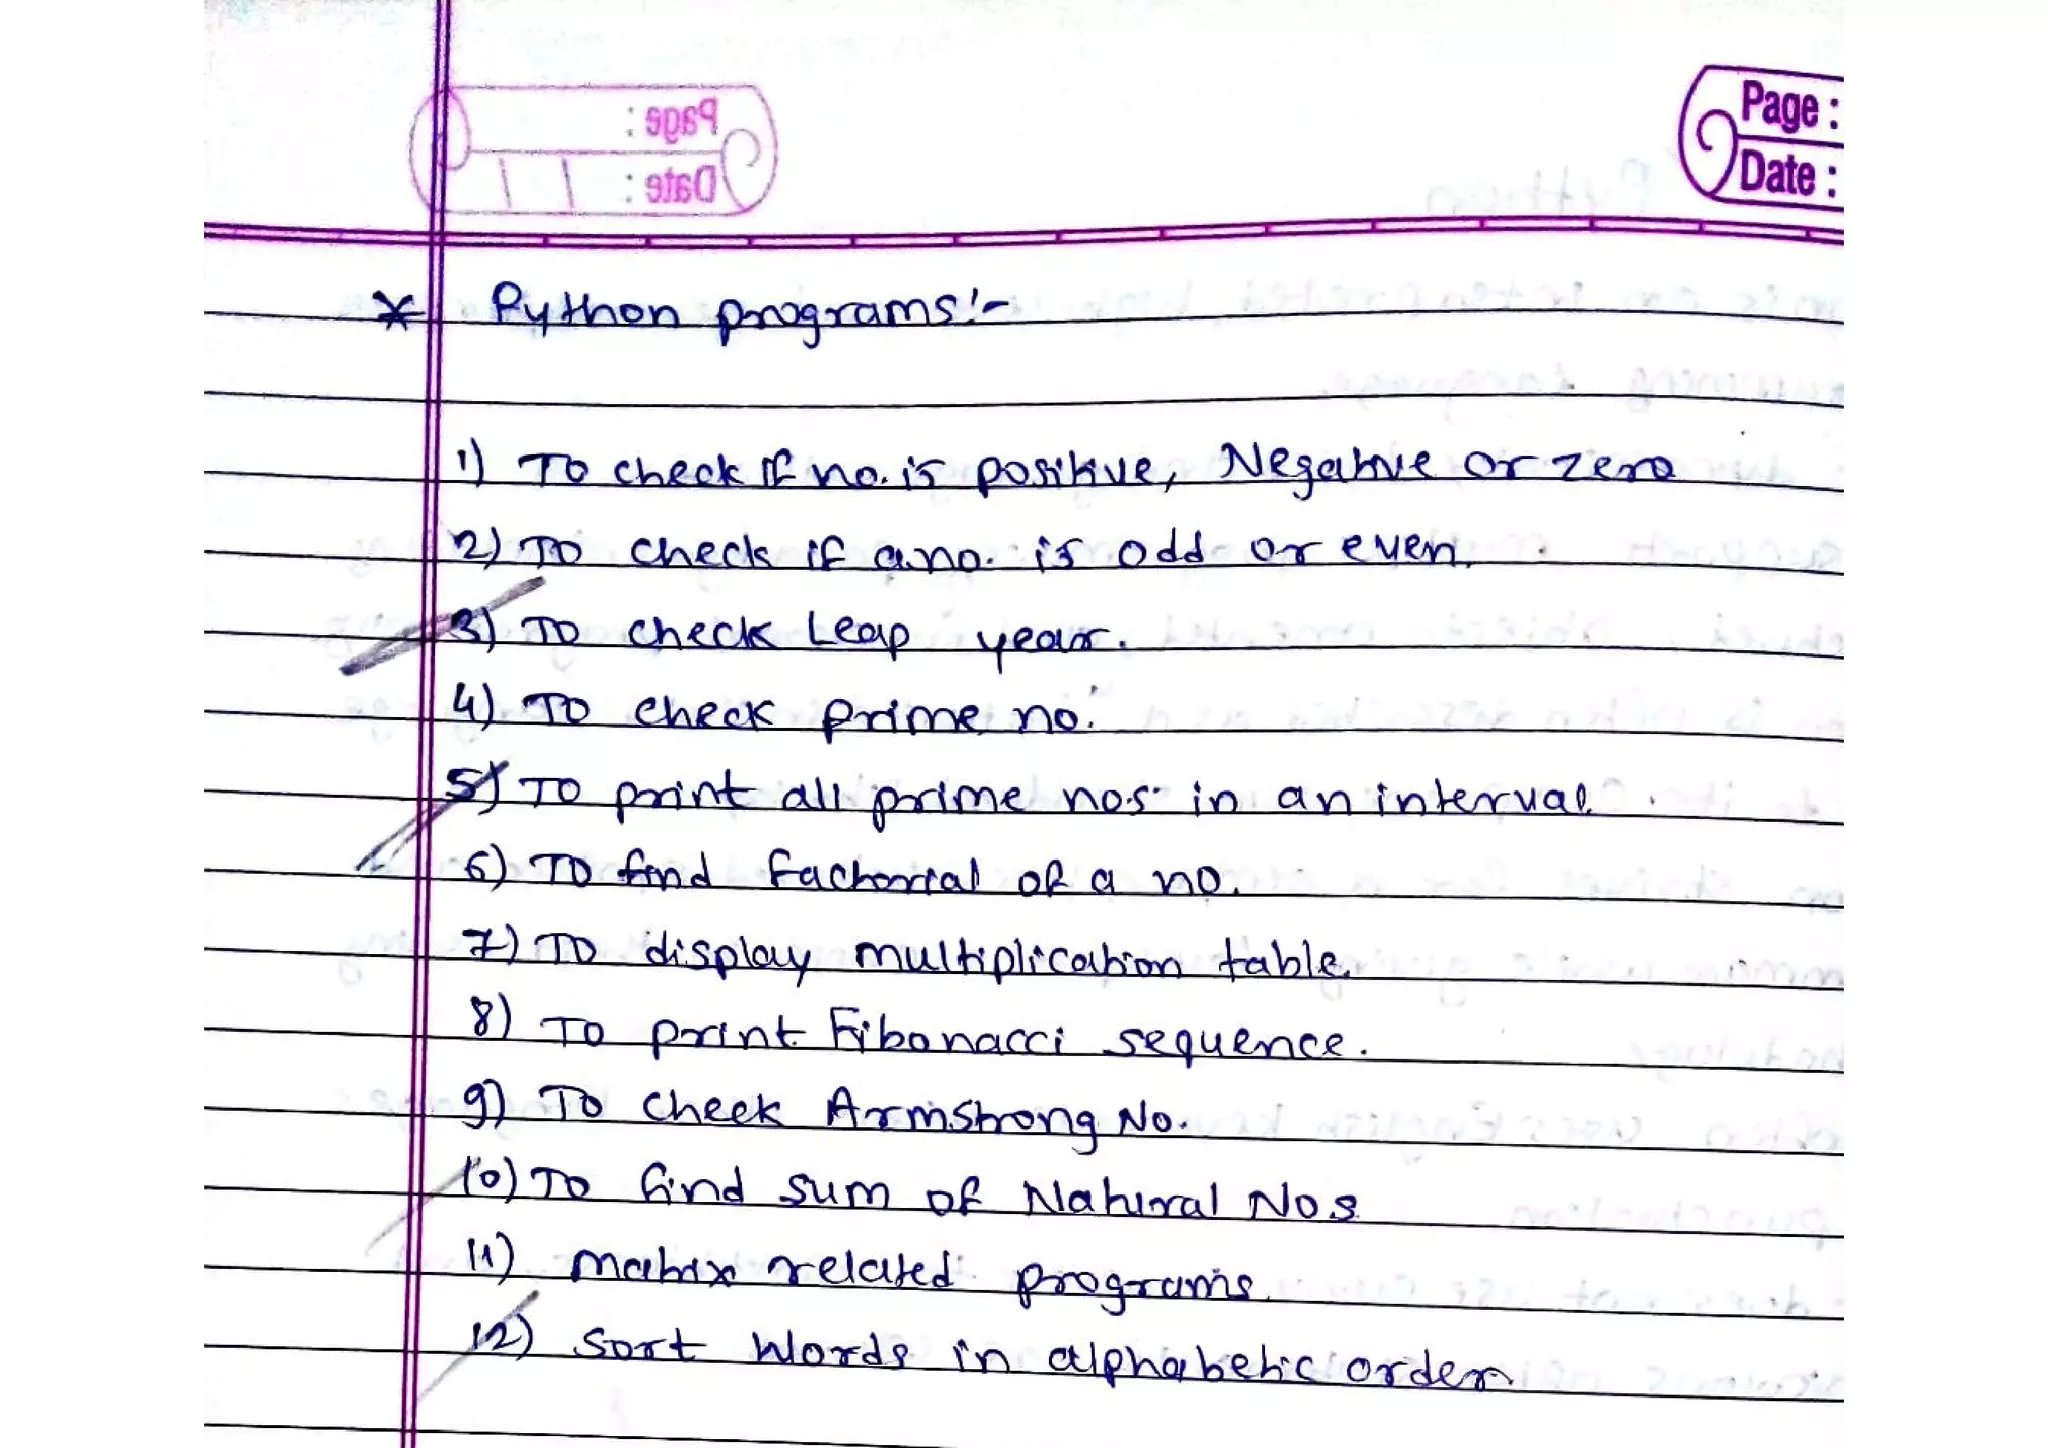 Page :
Date :
Page :
Date :
* Python programs:-
1) To check if no. is positive, Negative or zero
2) To check if a no. is odd or even.
3) To check Leap year.
4) To check prime no.
5) To print all prime nos. in an interval.
6) To find factorial of a no.
7) To display multiplication table.
8) To print Fibonacci sequence.
9) To check Armstrong No.
10) To find sum of Natural Nos.
11) matrix related programs.
12) Sort Words in alphabetic order